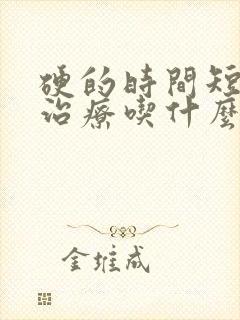 硬的時間短
治療喫什麼
金堆成